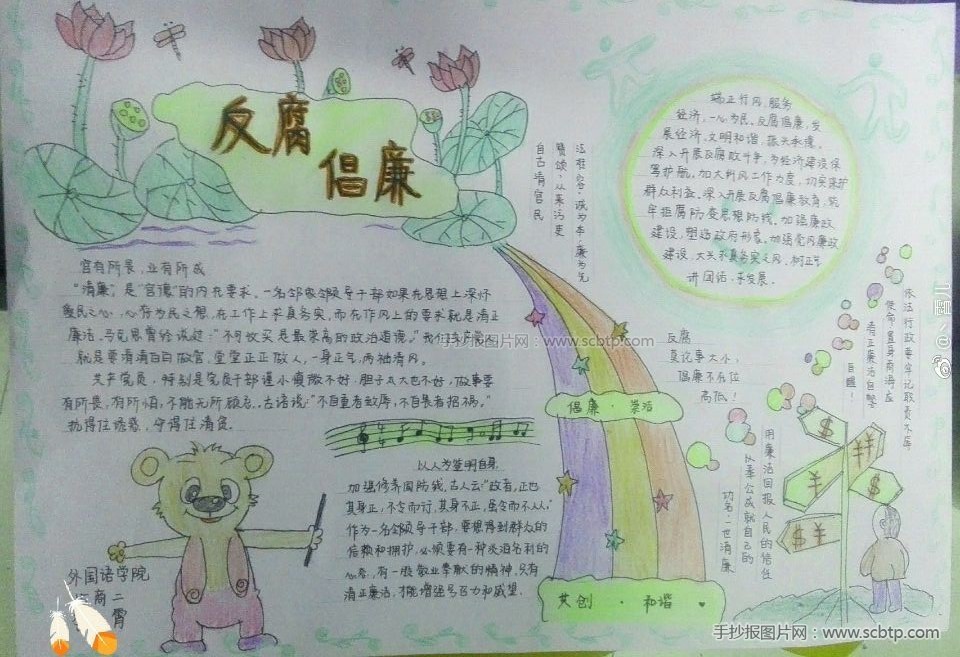 反腐
倡廉
官有所畏，业有所成
“清廉”，是“官德”的内在要求。一名邻家邻领导干部如果在思想上深怀
爱民之心，心存为民之想，在工作上求真务实，而在作风上的要求就是清正
廉洁。马克思曾经谈过：“不可收买是最崇高的政治道德。”我们共产党人
就是要清清白白做官，堂堂正正做人，一身正气，两袖清风。
共产党员，特别是党员干部谨小慎微不好，胆子太大也不好，做事要
有所畏，有所惧，不能无所顾忌。古语说：“不自重者致辱，不自畏者招祸。”
抗得住诱惑，守得住清贫。
端正行风，服务
经济，一心为民。反腐倡廉，发
展经济，文明和谐，振兴
深入开展反腐败斗争，为经济建设保
驾护航。加大纠风工作力度，切实维护
群众利益。深入开展反腐倡廉教育，筑
牢拒腐防变思想防线。加强廉政
建设，塑造政府形象。加强党内廉政
建设，大兴求真务实之风，树正气
讲团结，求发展。
法担容，诚为本，廉为先
赞颂，从来污吏
自古清官民
反腐
莫论事大小，
倡廉不在位
高低！
依法行政要牢记取贵永存
使命，置身商海应
清正廉洁自警
自醒！
倡廉·崇洁
以人为鉴明自身
加强修养固防线。古人云：“政者，正也
其身正，不令而行，其身不正，虽令而不从。”
作为一名邻领导干部，要想得到群众的
信赖和拥护，必须要有一种淡泊名利的
心态，有一股敬业奉献的精神，只有
清正廉洁，才能增强号召力和威望。
用廉洁回报人民的信任
以奉公成就自己的
功名，一世清廉
$ ¥
¥¥
¥
$
$¥
共创·和谐
外国语学院
商二
霄
手抄报图片网：www.scbtp.com
手抄报图片网：www.scbtp.com